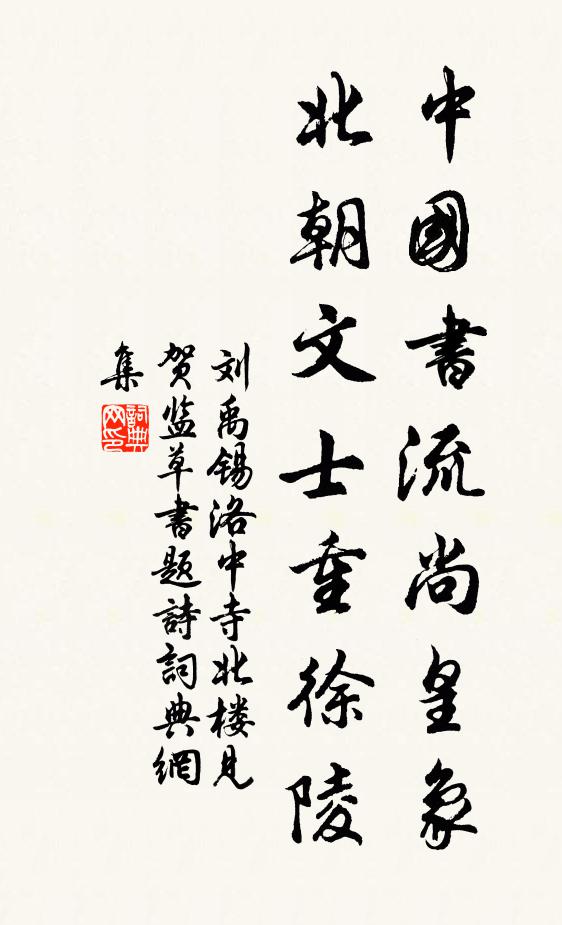 中國書流尚皇象
北朝文士重徐陵
刘禹锡洛中寺北楼見
贺监草書题詩詞典網
集
詞典网印